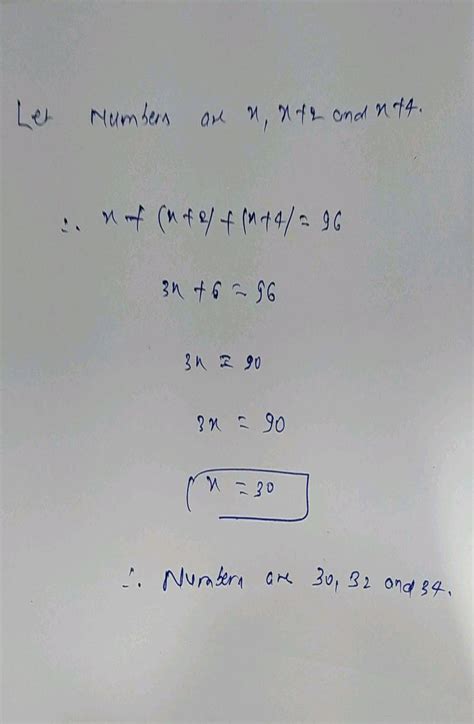 Let Numbers are x, x+2 and x+4.
∴ x + (x+2) + (x+4) = 96
3x + 6 = 96
3x = 90
3x = 90
x = 30
∴ Numbers are 30, 32 and 34.